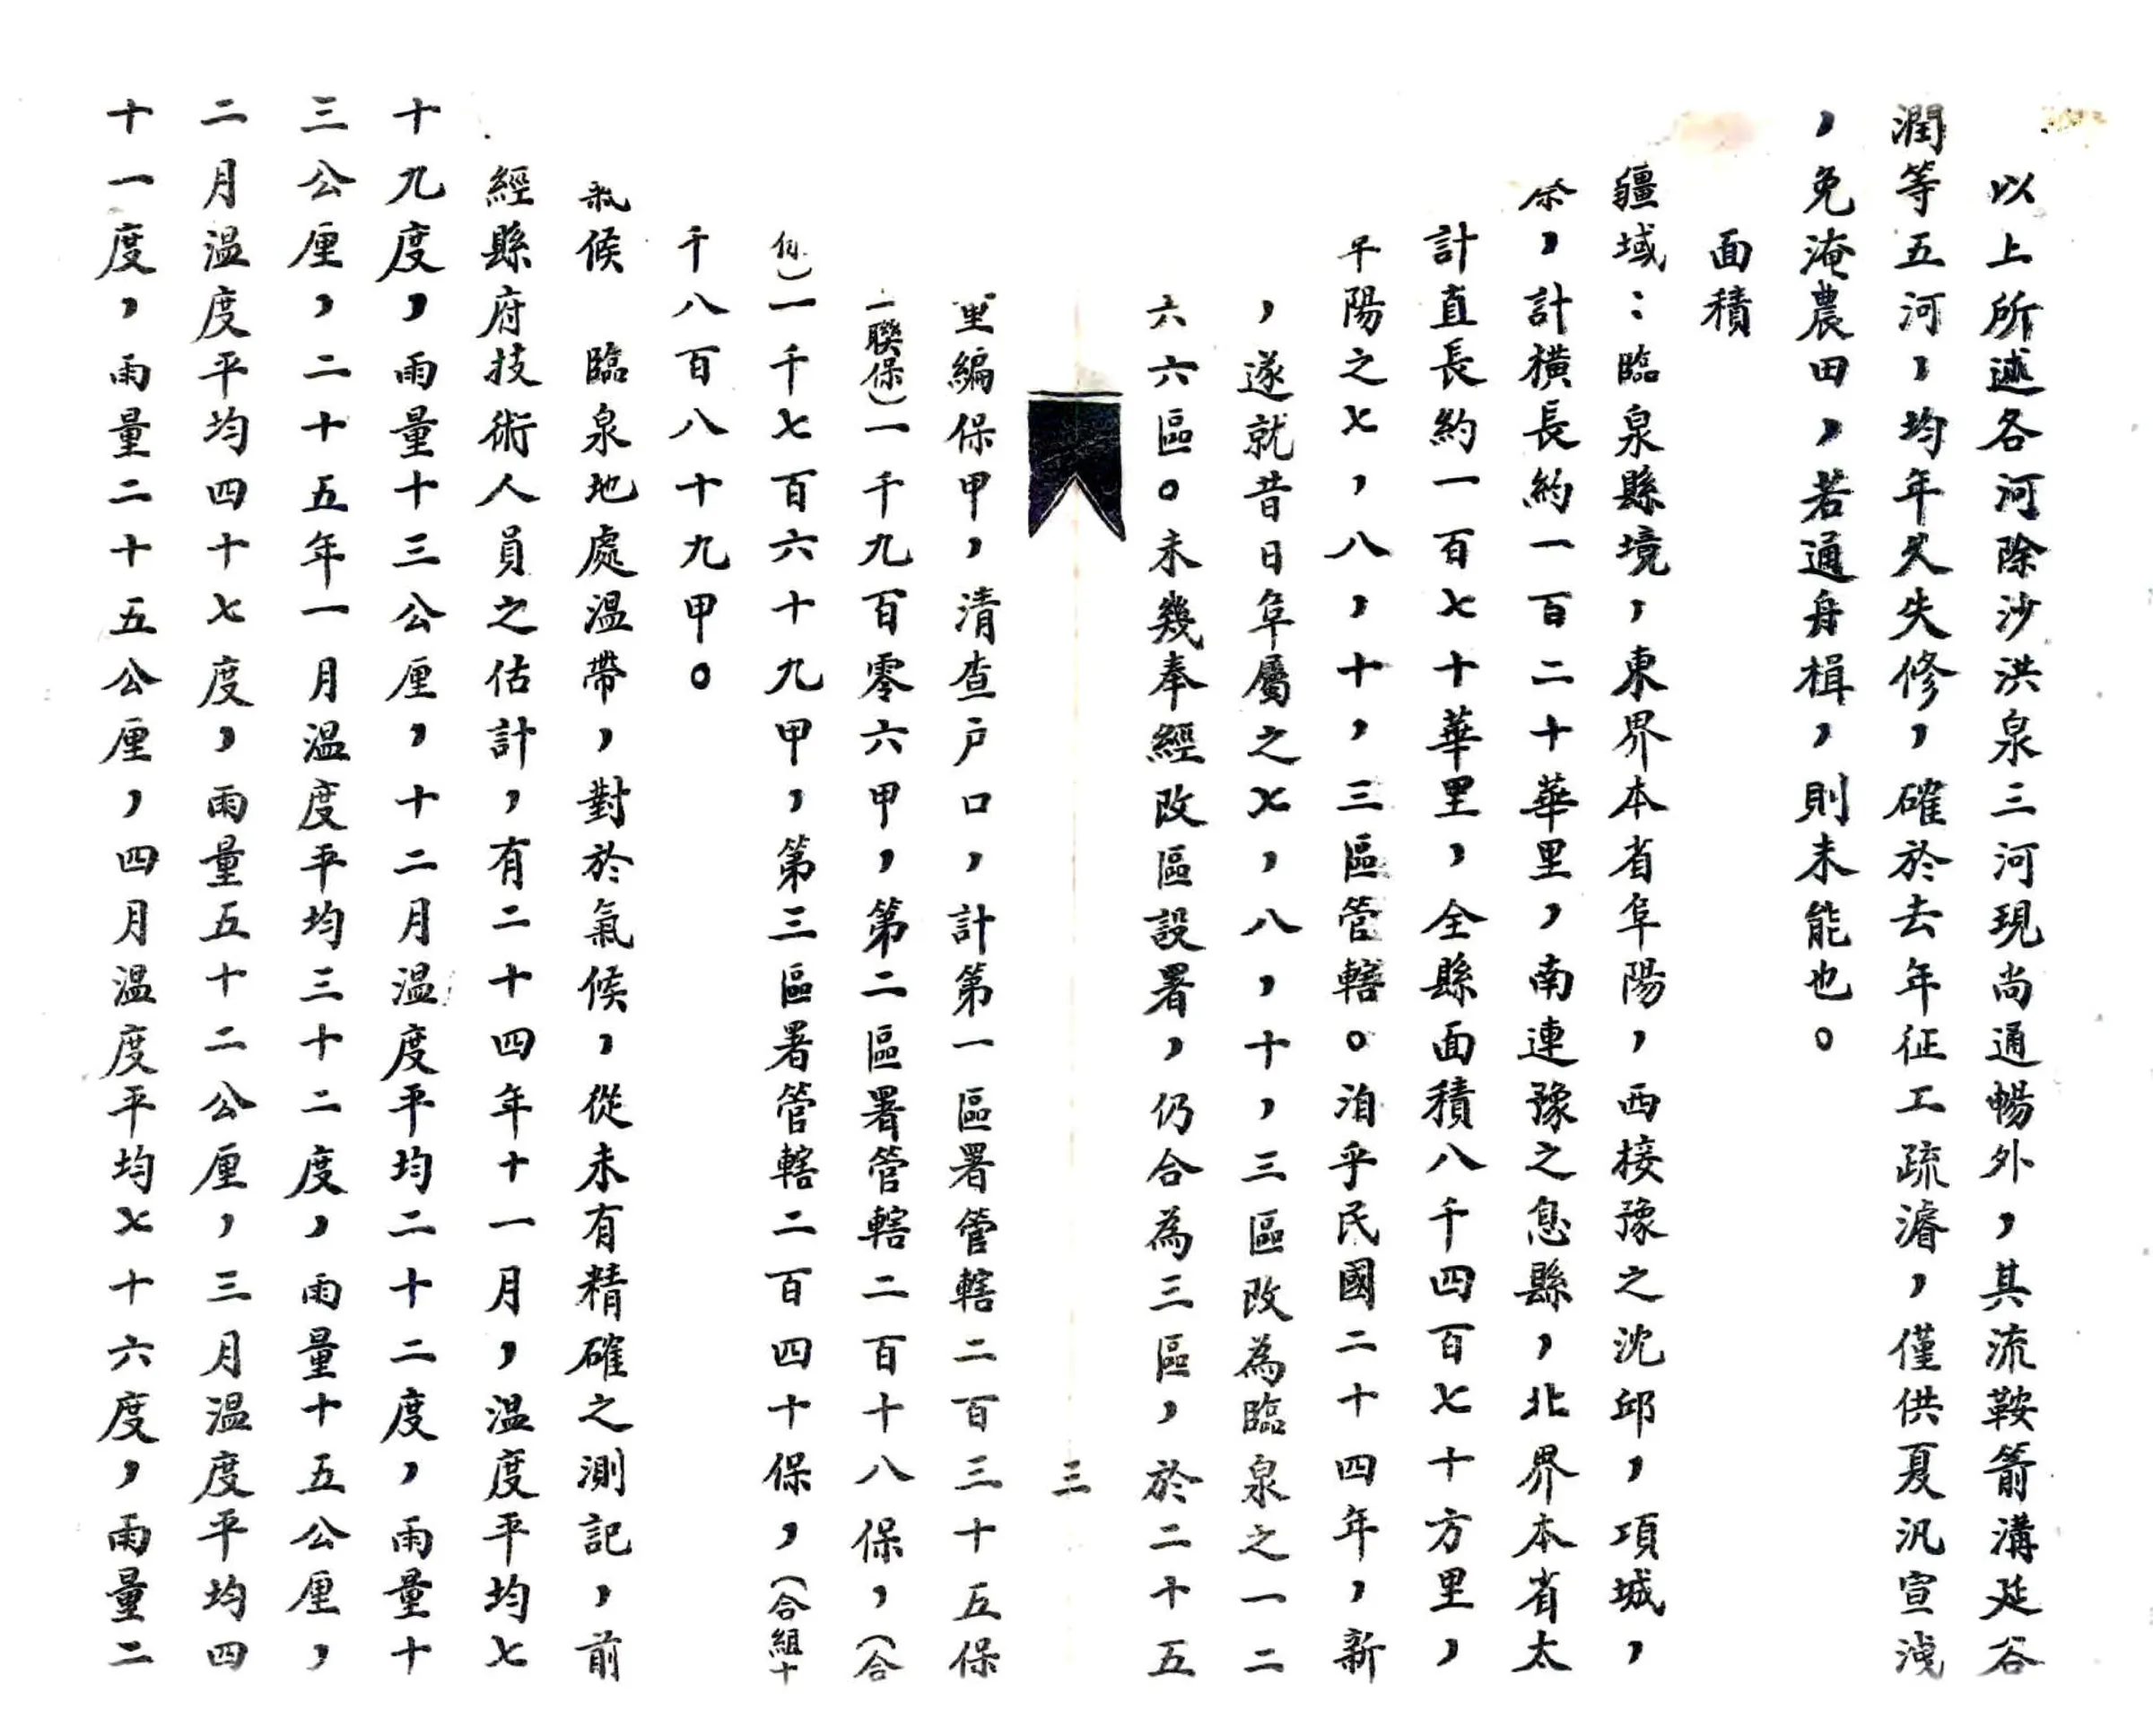 以上所述各河除沙洪泉三河現尚通暢外，其流鞍箭溝延谷
潤等五河，均年久失修，確於去年征工疏濬，僅供夏汛宣洩
，免淹農田，若通舟楫，則未能也。
面積
疆域：臨泉縣境，東界本省阜陽，西接豫之沈邱，項城，
，計橫長約一百二十華里，南連豫之息縣，北界本省太
計直長約一百七十華里，全縣面積八千四百七十方里，
陽之七，八，十，三區管轄。洎乎民國二十四年，新
，遂就昔日阜屬之七，八，十，三區改為臨泉之一二
六區。未幾奉經改區設署，仍合為三區，於二十五
三
里編保甲，清查户口，計第一區署管轄二百三十五保
一聯保）一千九百零六甲，第二區署管轄二百十八保，（合
）一千七百六十九甲，第三區署管轄二百四十保，（合組十
千八百八十九甲。
氣候　臨泉地處溫帶，對於氣候，從未有精確之測記，前
經縣府技術人員之估計，有二十四年十一月，溫度平均七
十九度，雨量十三公厘，十二月溫度平均二十二度，雨量十
三公厘，二十五年一月溫度平均三十二度，雨量十五公厘，
二月溫度平均四十七度，雨量五十二公厘，三月溫度平均四
十一度，雨量二十五公厘，四月溫度平均七十六度，雨量二